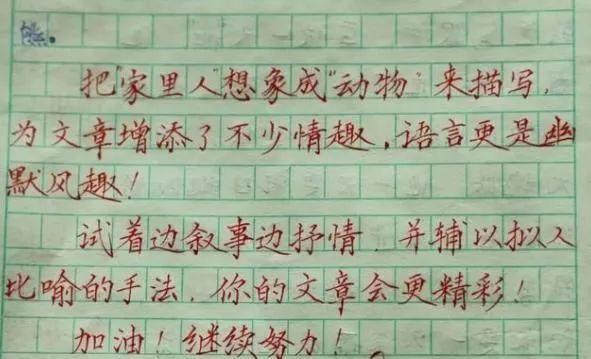 熊.
把"家里人"想象成"动物"来描写,
为文章增添了不少情趣,语言更是幽
默风趣!
试着边叙事边抒情,并辅以拟人
比喻的手法,你的文章会更精彩!
加油!继续努力!